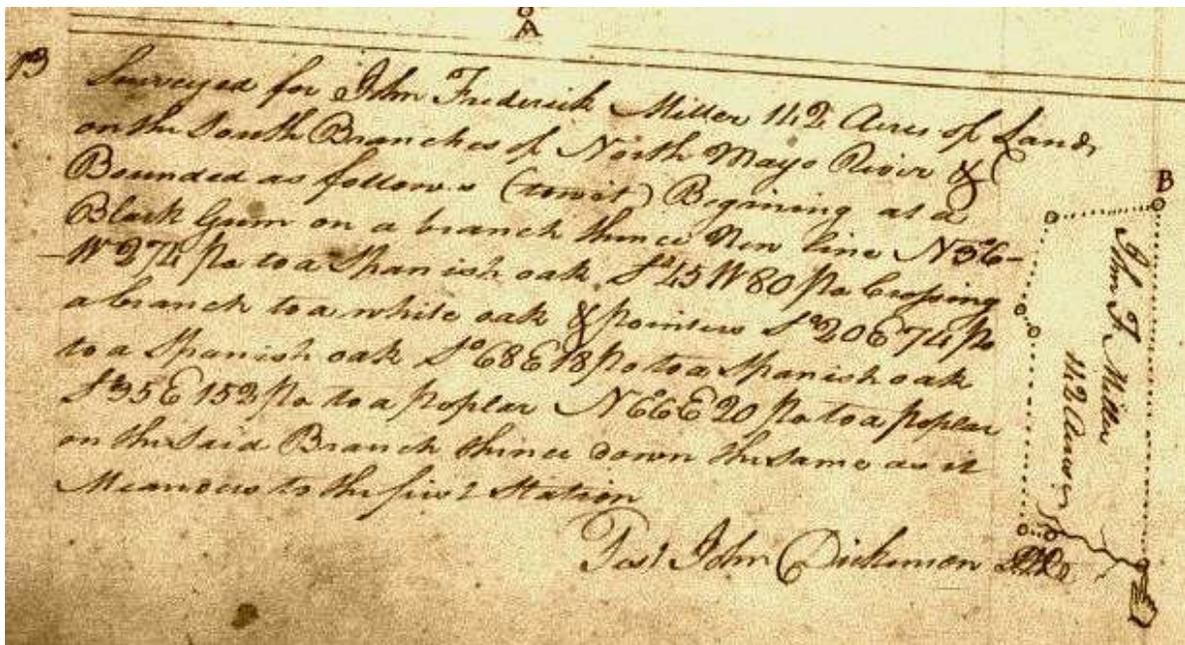 A
Surveyed for John Frederick Miller 142 Acres of Land
on the South Branches of North Mayo River &
Bounded as follows (towit) Begining at a
Black Gum on a branch thence New line N36
W 274 po to a Spanish oak So 45 W 80 po Crossing
a branch to a white oak & pointers So 20 E 74 po
to a Spanish oak So 68 E 18 po to a Spanish oak
So 35 E 152 po to a poplar N 66 E 20 po to a poplar
on the Said Branch thence down the Same as it
Meanders to the first Station
John Dickinson
B
John F. Miller
142 Acres